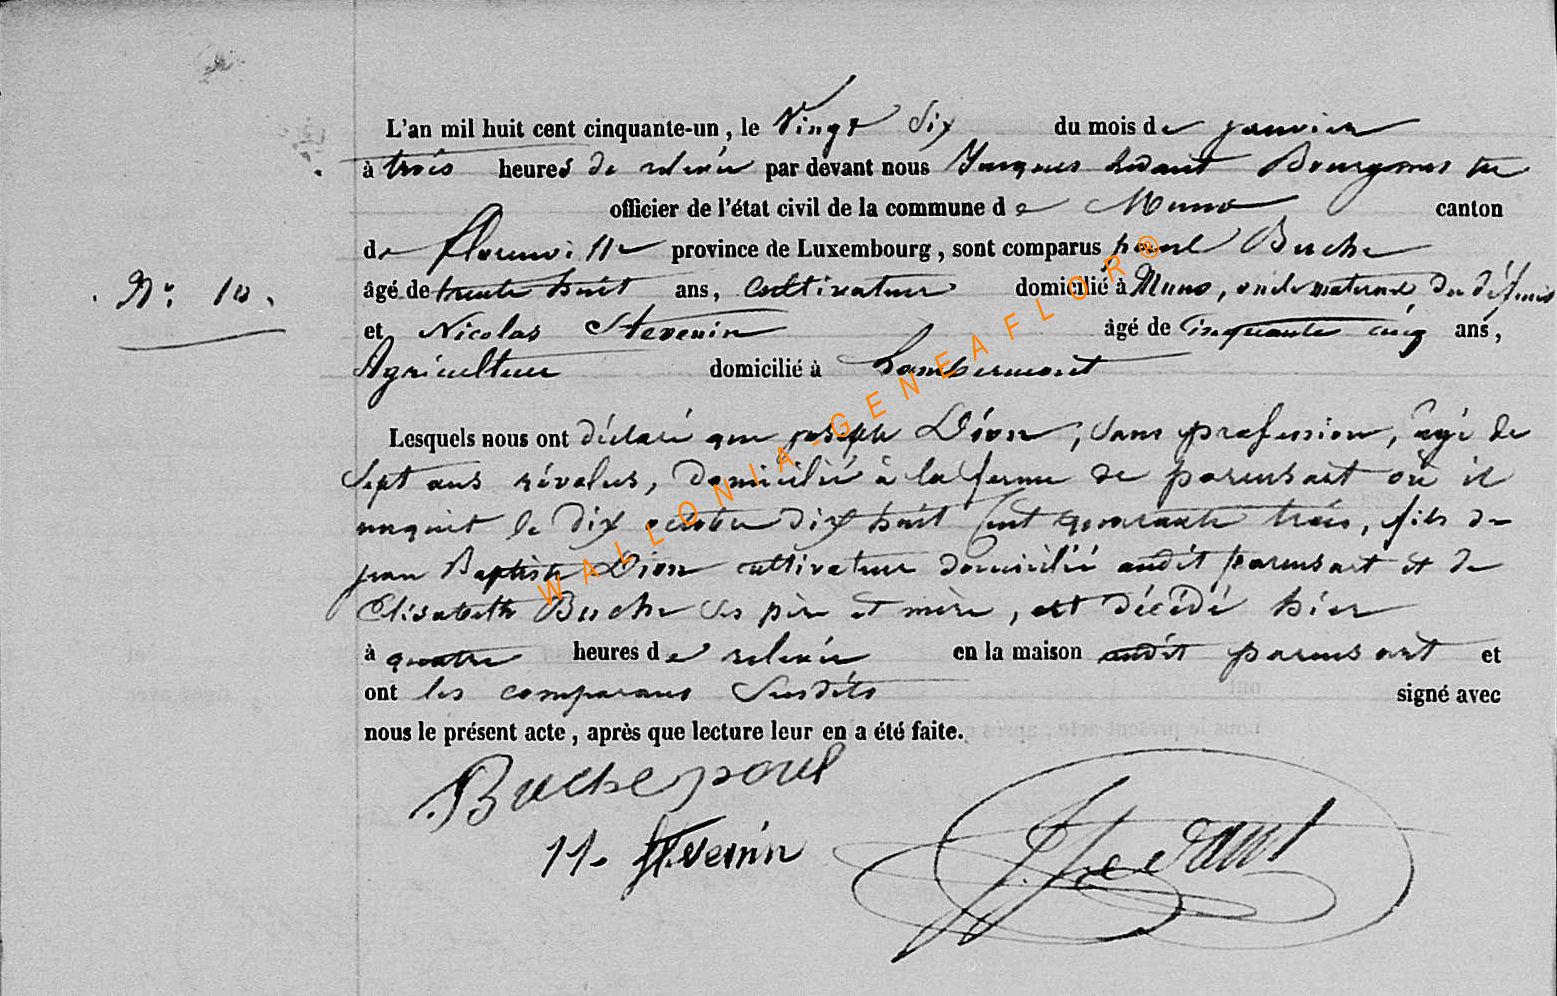 L'an mil huit cent cinquante-un, le Vingt Six du mois de janvier
à trois heures de relevée par devant nous Jacques hedant Bourgmestre
officier de l'état civil de la commune de Muno canton
de florenville province de Luxembourg, sont comparus paul Buche
Nº. 10.
âgé de trente huit ans, Cultivateur domicilié à Muno, oncle maternel du défunt
et Nicolas Stevenin âgé de Cinquante cinq ans,
Agriculteur domicilié à Lambermont
Lesquels nous ont déclaré que joseph Dion, sans profession, âgé de
Sept ans révolus, domicilié à la ferme de parensart où il
naquit le dix octobre dix huit Cent quarante trois, fils de
jean Baptiste Dion cultivateur domicilié audit parensart et de
Elisabeth Buche ses père et mère, est décédé hier
à quatre heures de relevée en la maison audit parensart et
ont les comparans Susdits signé avec
nous le présent acte, après que lecture leur en a été faite.
Buche poul
N. Stevenin
J. hedant
WALLONIA-GENEAFLOR®